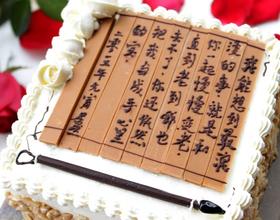 我能想到最浪
漫的事就是和
你一起慢慢变老
直到老到哪也
去不了，你还依然
把我当成手心里
的宝
二零一五年元月